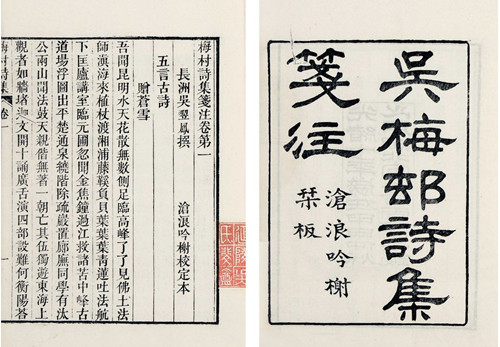 吳梅邨詩集
箋注
滄浪吟榭
栞板
梅村詩集箋注卷第一
長洲吳翌鳳撰
滄浪吟榭校定本
五言古詩
贈蒼雪
吾聞昆明水天花散無數側足臨高峰了了見佛土法
師滇海來植杖渡湘浦藤鞵負貝葉葉葉青蓮吐法航
下匡廬講室臨玄圃忽聞金焦鐘過江救諸苦中峰古
道場浮圖出平楚通泉繞階除疏巖置廊廡同學有汰
公兩山聞法鼓天親偕無著一朝亡其伍獨遊東海上
觀者如牆堵迦文開十誦廣舌演四部設難何衡陽答
梅村詩集
卷一